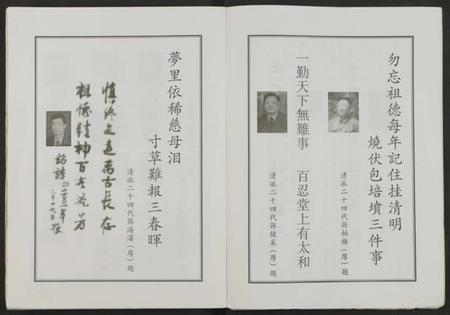 勿忘祖德每年記住挂清明
燒伏包培墳三件事
清派二十四代孫柏梅(厚)題
一勤天下無難事 百忍堂上有太和
清派二十四代孫俊采(厚)題
夢里依稀慈母淚
寸草難報三春暉
清派二十四代孫海濱(厚)題
慎終追遠萬古長存
祖德精神百世流芳